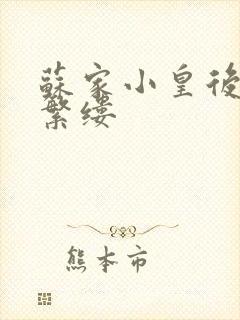 蘇家小皇後
繁缕
熊本市